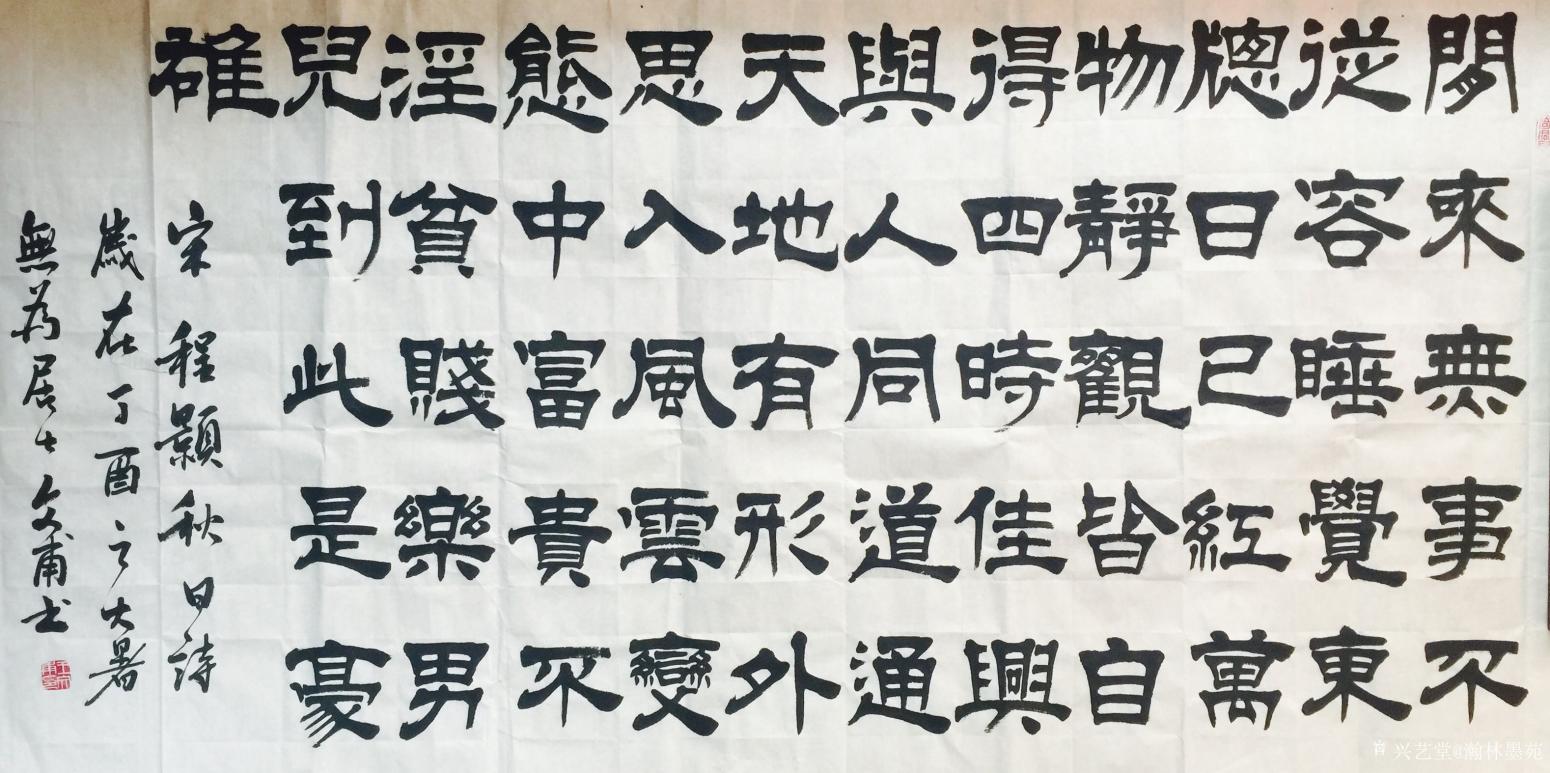 閒來無事不
從容睡覺東
牕日已紅萬
物靜觀皆自
得四時佳興
與人同道通
天地有形外
思入風雲變
態中富貴不
淫貧賤樂男
兒到此是豪
雄
宋程顥秋日詩
歲在丁酉之大暑
無為居士文甫书
兴艺堂@瀚林墨苑